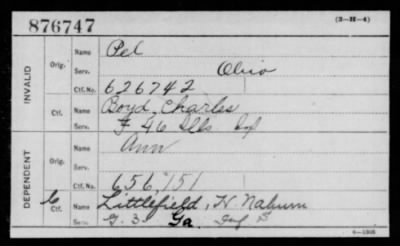 876747
(3—H—4)
INVALID
Orig. Name Pel
Serv. Ohio
Ctf. No. 626742
Ctf. Name Boyd, Charles
Serv. F 46 Ills. Inf
DEPENDENT
Orig. Name Ann
Serv.
Ctf. No. 656,151
Ctf. Name Littlefield, H. Nahum
Serv. G. 3 Ga. Inf